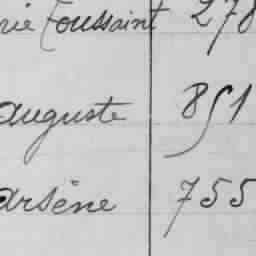 rie Toussaint 278
auguste 851
arsène 755